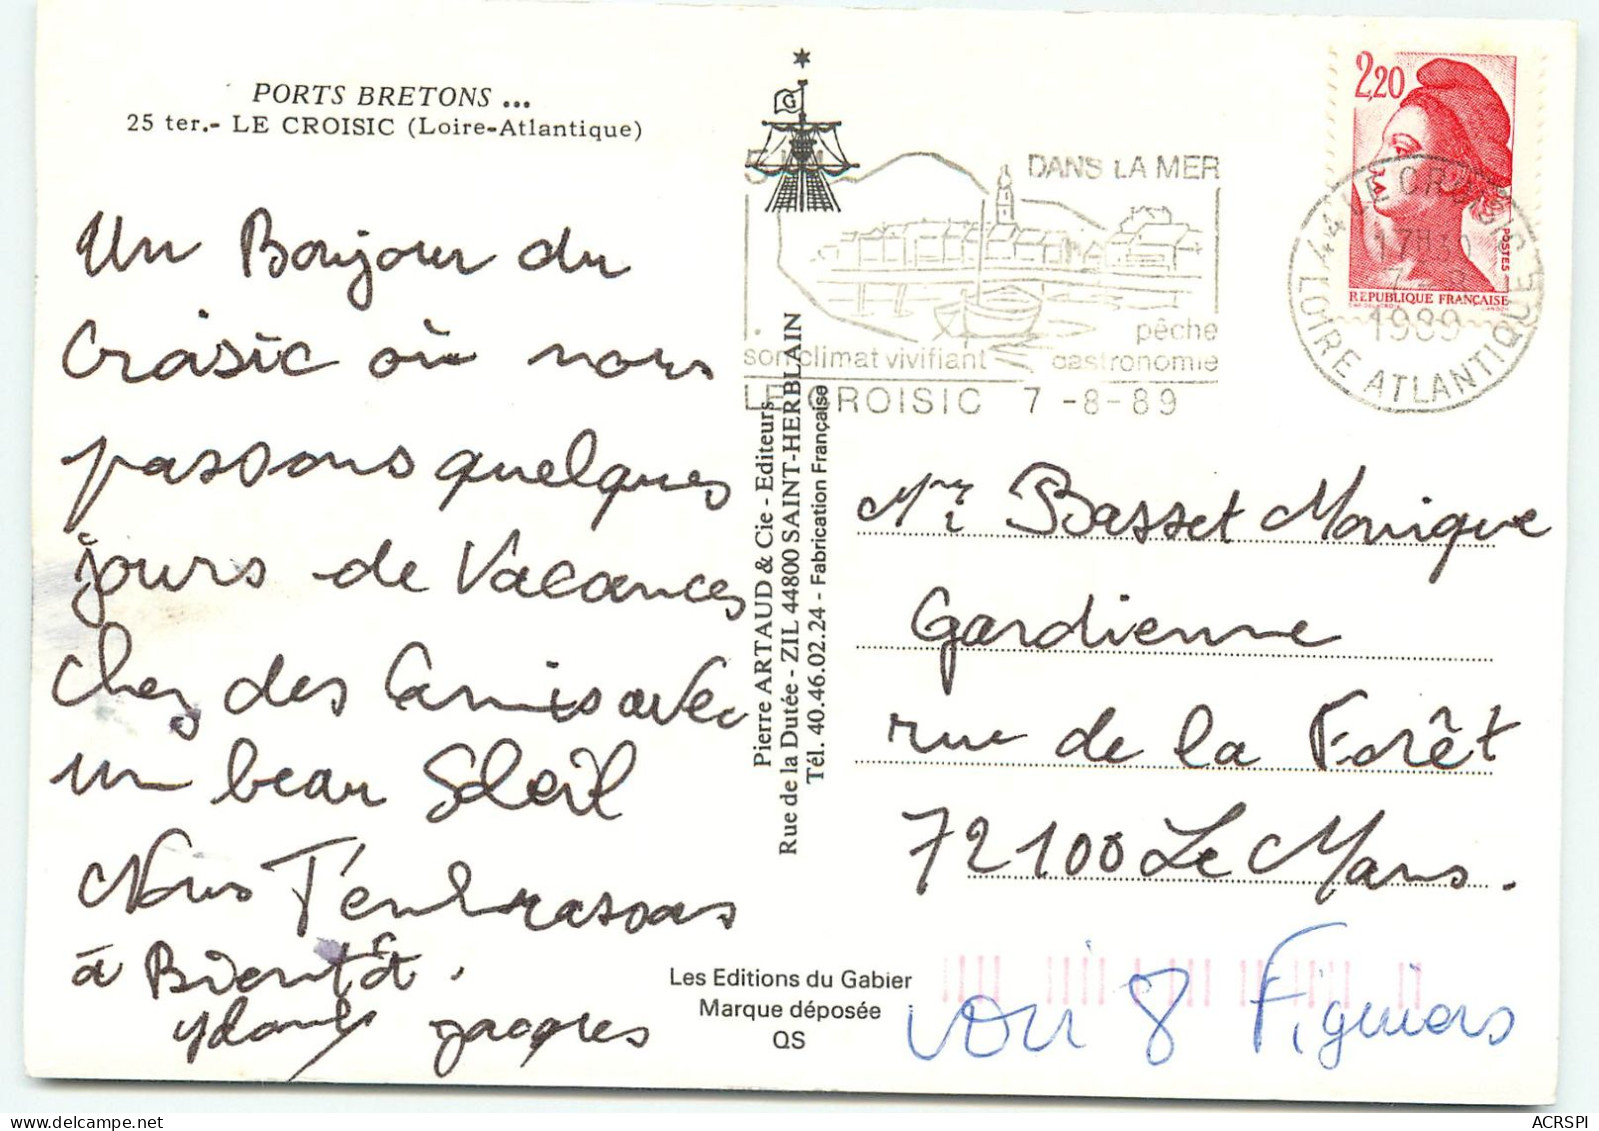 PORTS BRETONS ...
25 ter.- LE CROISIC (Loire-Atlantique)
Un Bonjour du
Croisic où nous
passons quelques
jours de Vacances
chez des Amis avec
un beau Soleil
Nous T'embrassons
à Bientôt.
Jacques
Pierre ARTAUD & Cie - Editeurs
Rue de la Dutée - ZIL 44800 SAINT-HERBLAIN
Tél. 40.46.02.24 - Fabrication Française
Les Editions du Gabier
Marque déposée
QS
G
DANS LA MER
pêche
son climat vivifiant gastronomie
LE CROISIC 7 -8-89
2,20
POSTES
REPUBLIQUE FRANÇAISE
44 LE CROISIC
17H30
1989
LOIRE ATLANTIQUE
Basset Monique
Gardienne
rue de la Forêt
72100 Le Mans.
8 Figuiers
ACRSPI